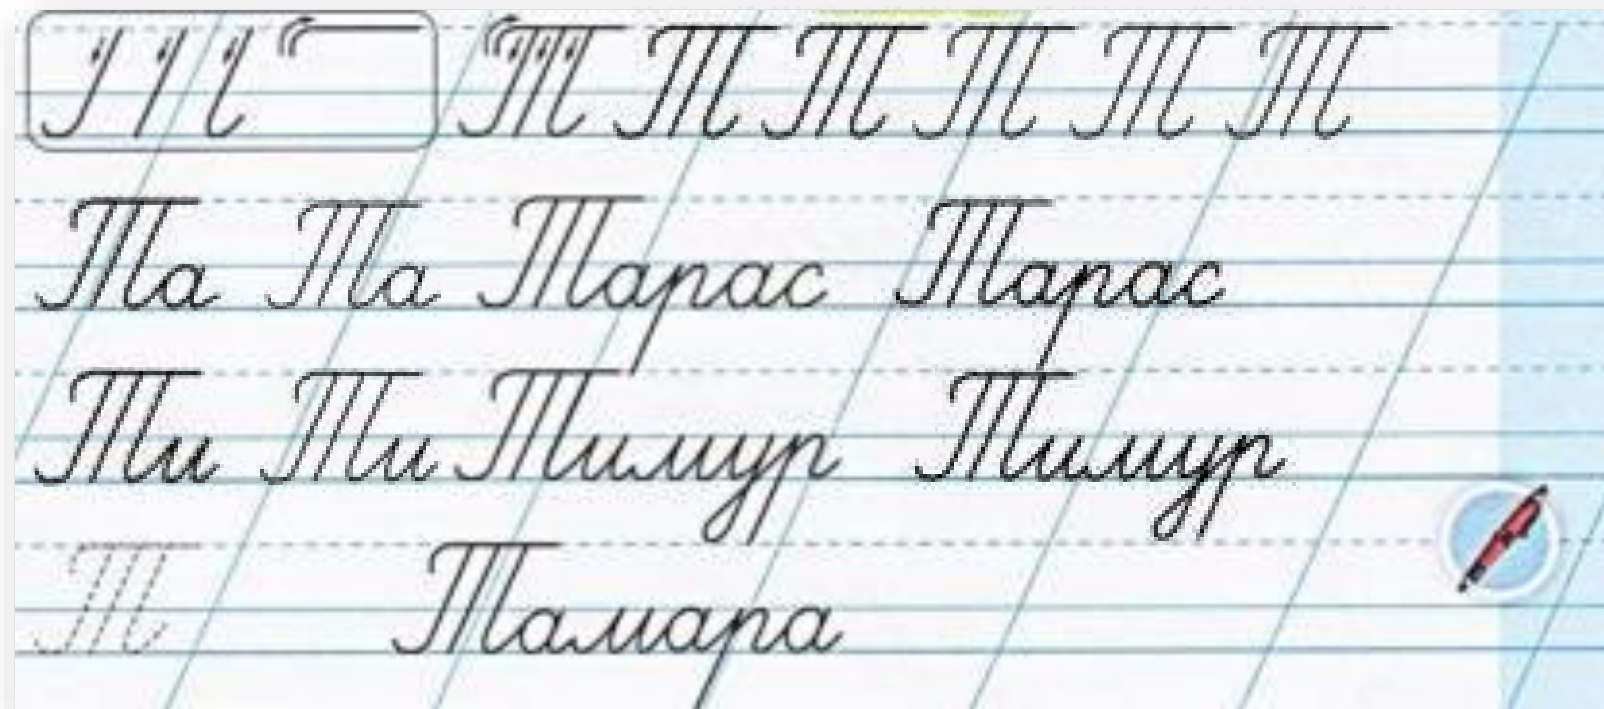 Т Т Т Т Т Т
Та Та Тарас Тарас
Ти Ти Тимур Тимур
Т Тамара